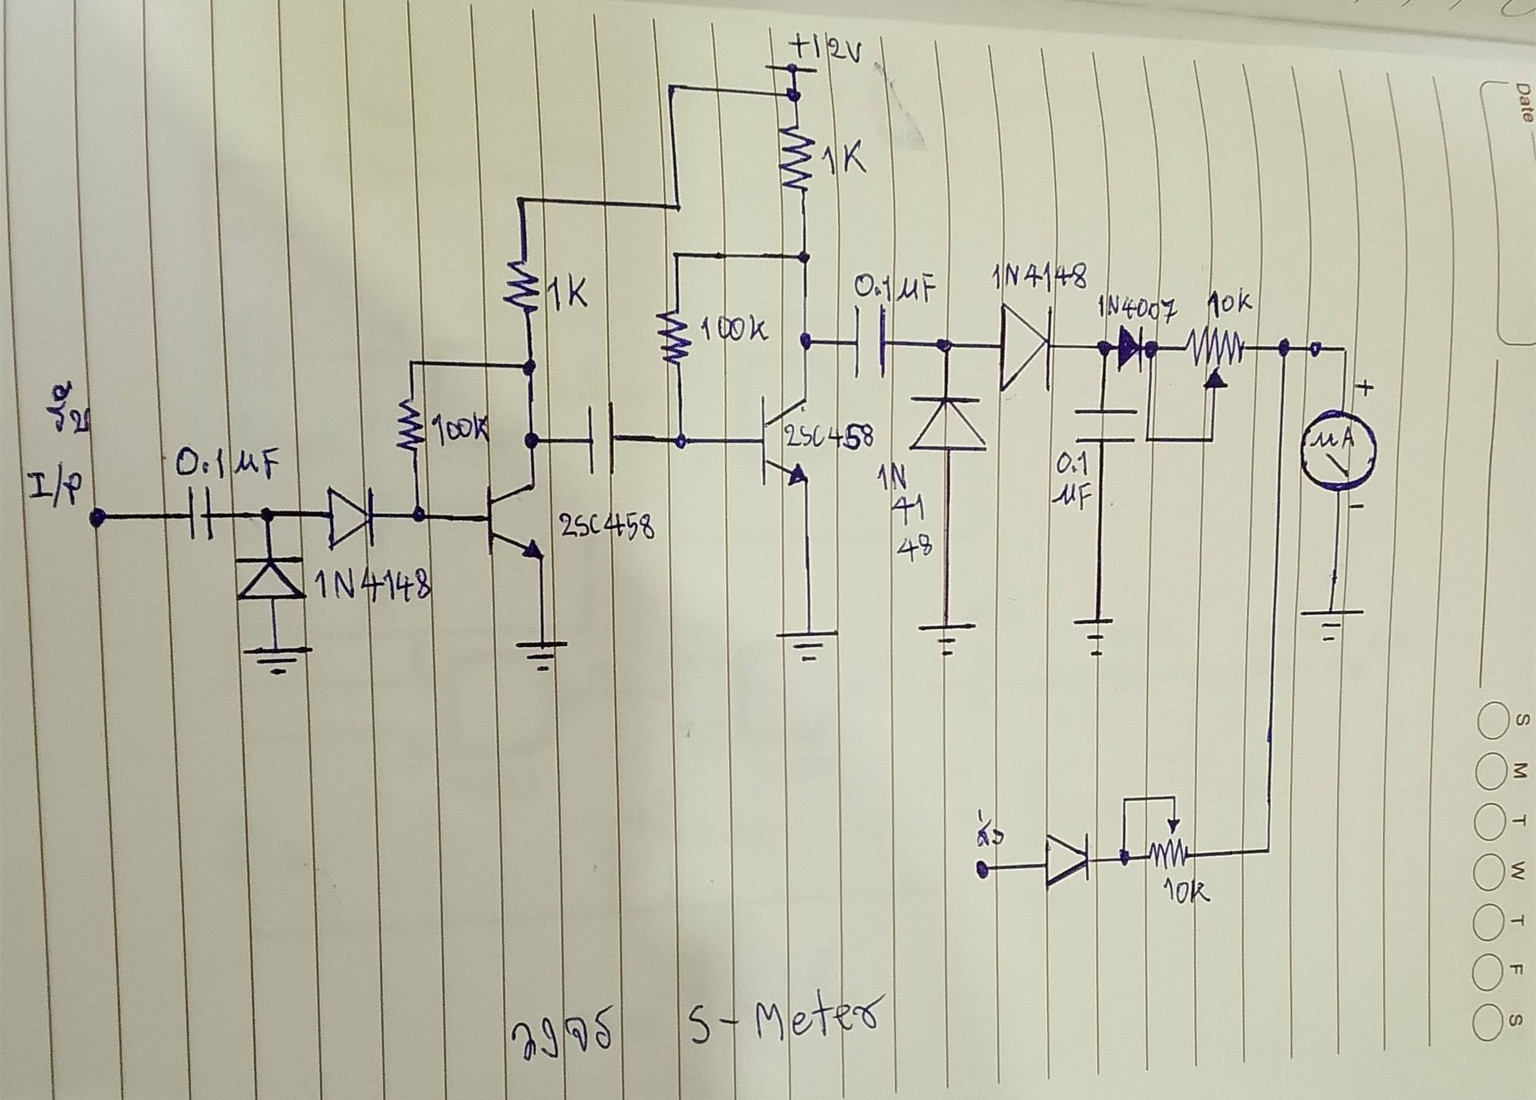 +12V
1K
1K
100K
100K
0.1 µF
1N4148
1N4007
10K
รับ
I/P
0.1 µF
1N4148
2SC458
2SC458
1N
41
48
0.1
µF
+
µA
−
ส่ง
10K
วงจร S-Meter
Date
S
M
T
W
T
F
S